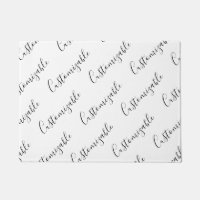 Customizable
Customizable
Customizable
Customizable
Customizable
Customizable
Customizable
Customizable
Customizable
Customizable
Customizable
Customizable
Customizable